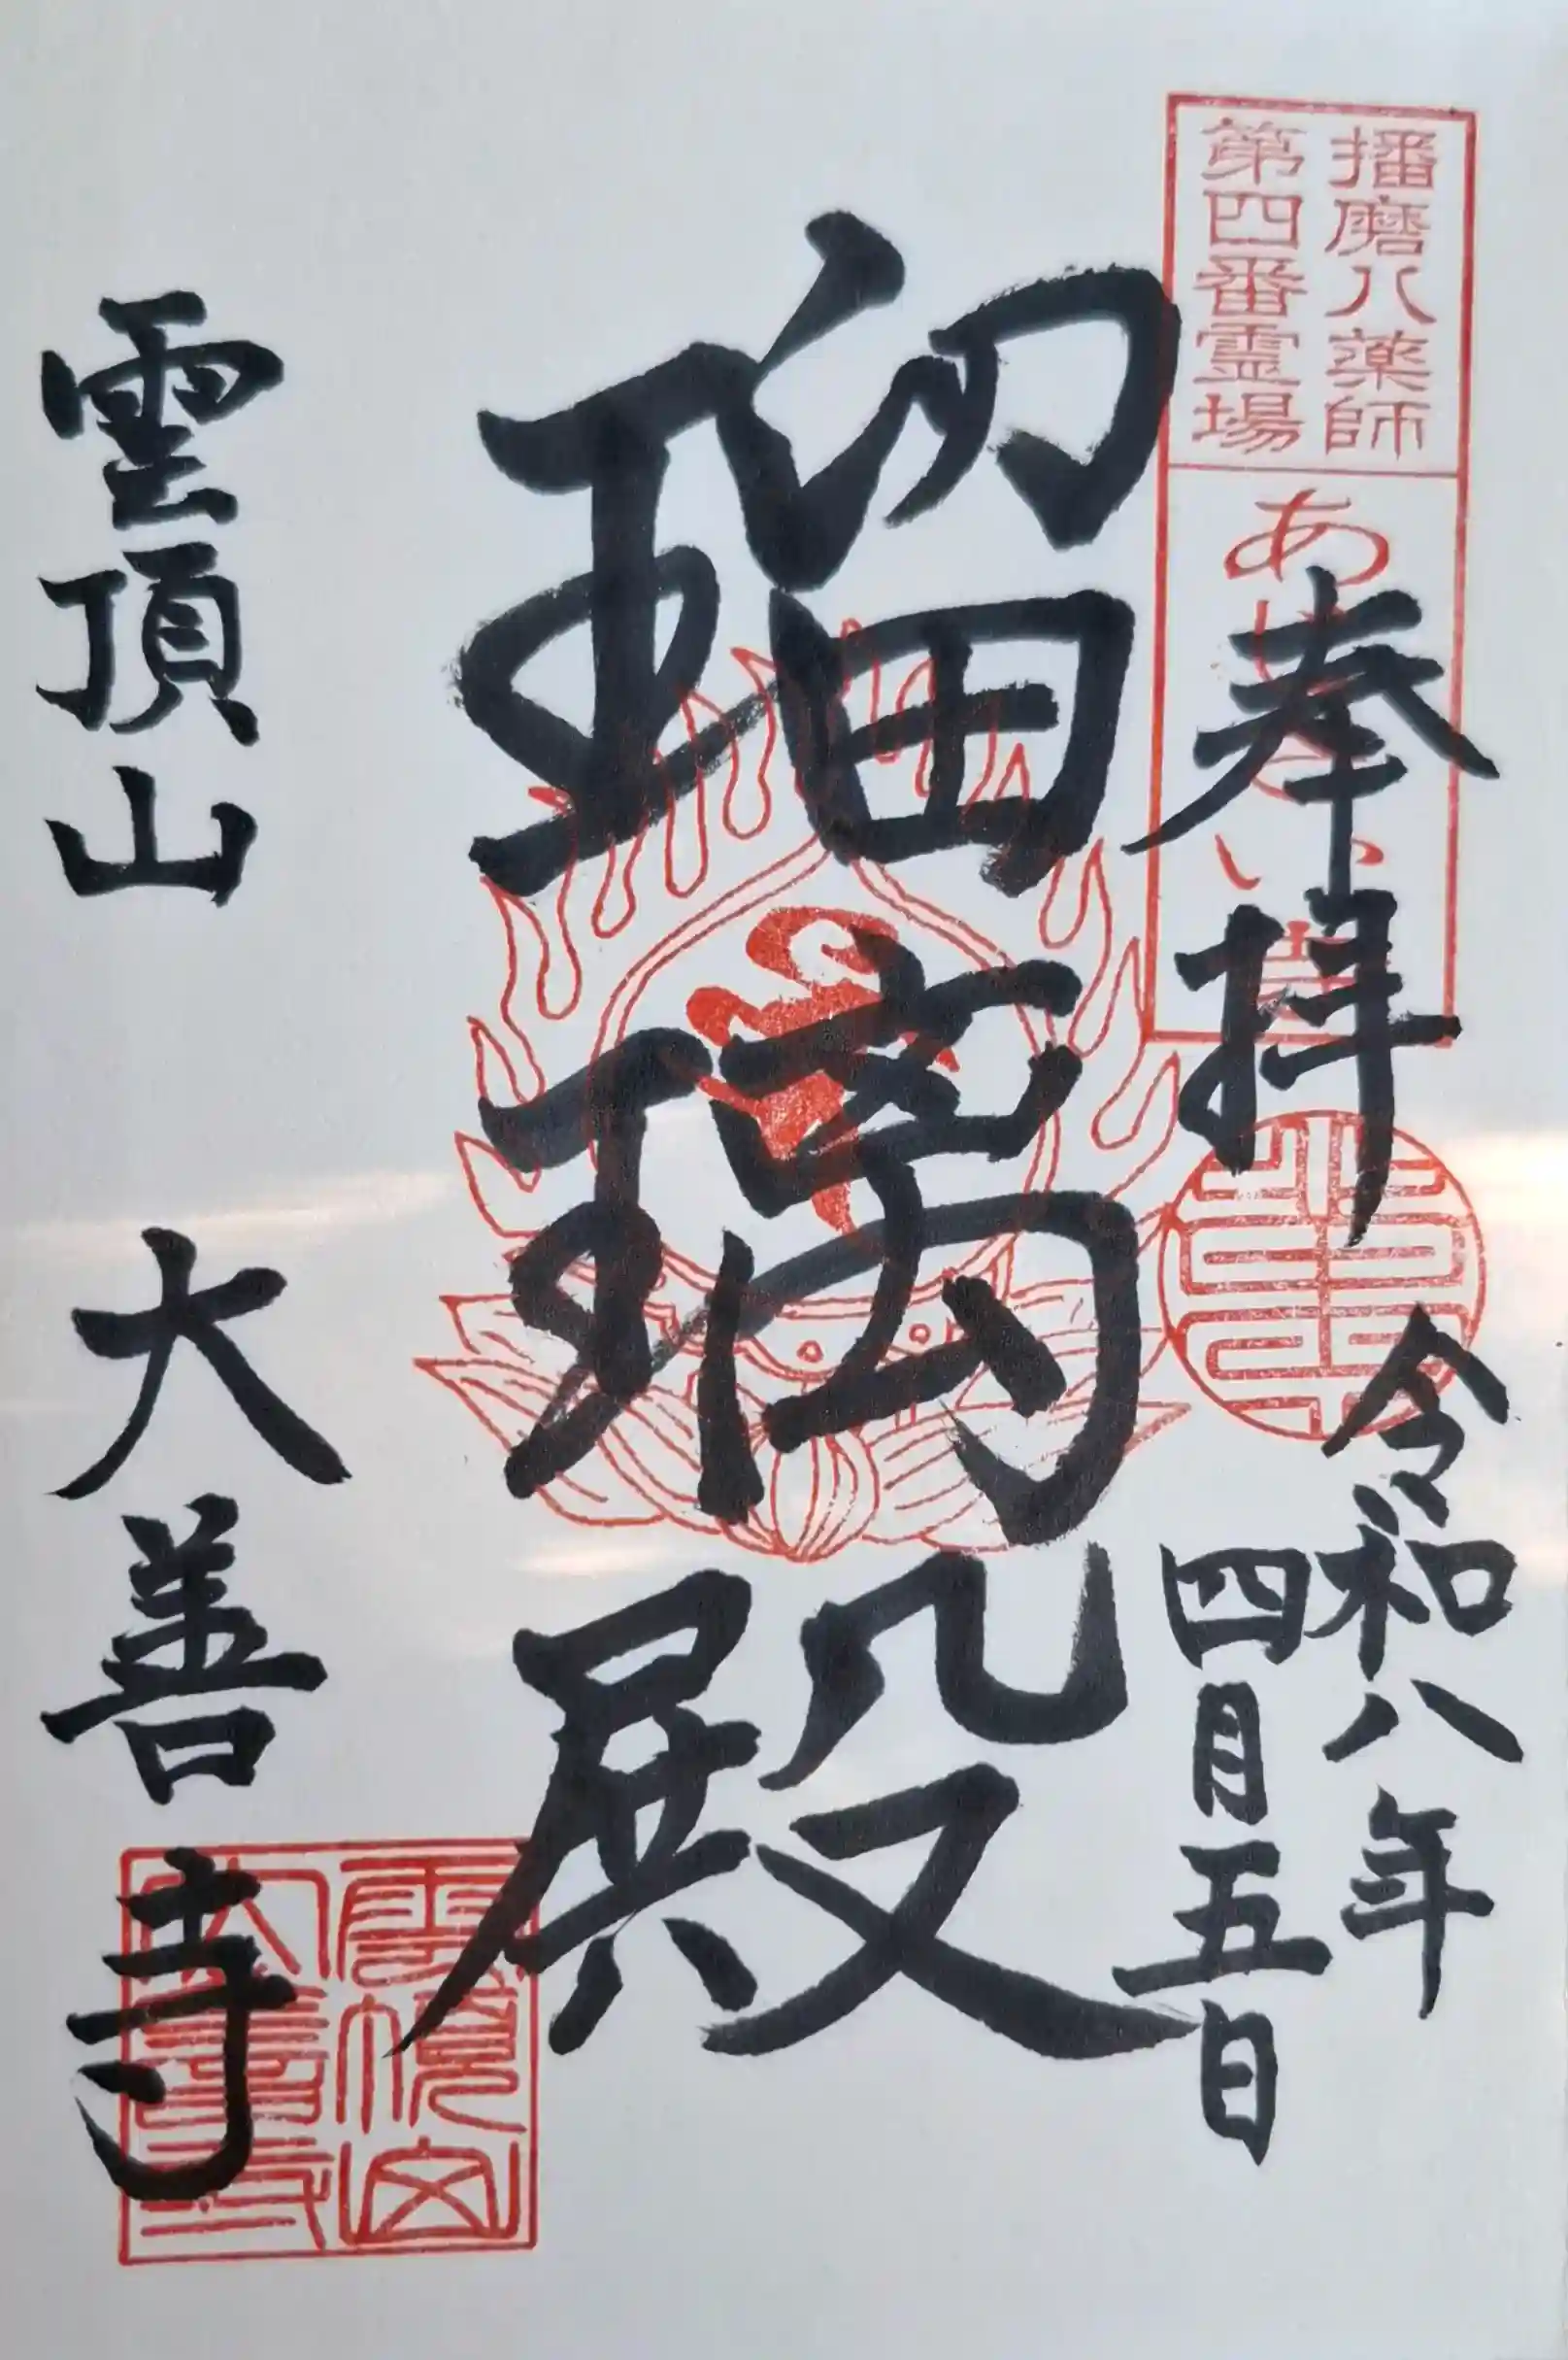 播磨八薬師
第四番霊場
奉拝
令和八年
四月五日
瑠璃殿
雲頂山 大善寺
雲頂山
大善寺